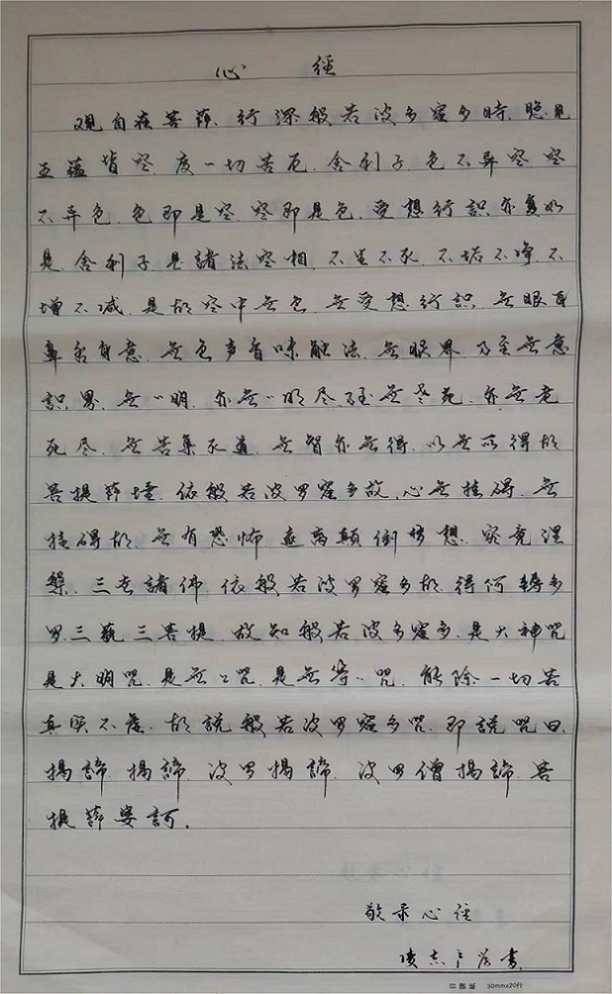 心 经
观自在菩萨.行深般若波多蜜多時.照見
五蕴皆空.度一切苦厄.舍利子.色不异空空
不异色.色即是空空即是色.受想行識亦复如
是.舍利子是諸法空相.不生不灭.不垢不净.不
增不减.是故空中無色.無受想行識.無眼耳
鼻舌身意.無色声香味触法.無眼界乃至無意
識界.無〻明.亦無〻明尽.乃至無老死.亦無老
死尽.無苦集灭道.無智亦無得.以無所得故
菩提萨埵.依般若波罗蜜多故.心無挂碍.無
挂碍故.無有恐怖.遠离颠倒梦想.究竟涅
槃.三世諸佛.依般若波罗蜜多故.得阿耨多
罗.三藐三菩提.故知般若波多蜜多.是大神咒
是大明咒.是無上咒.是無等〻咒.能除一切苦
真实不虚.故説般若波罗蜜多咒.即説咒曰.
揭諦揭諦.波罗揭諦.波罗僧揭諦.菩
提萨婆訶.
敬录心经
凌志 书
30mmx20行